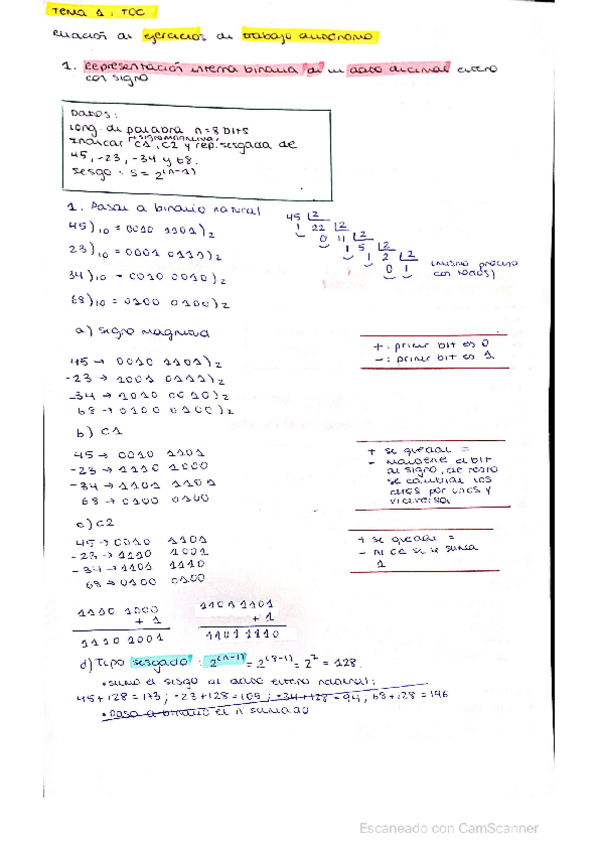 TEMA 1: TOC
Relación de ejercicios de trabajo autónomo
1. Representación interna binaria de un dato decimal entero
con signo
Datos:
long. de palabra n=8 bits
signo magnitud,
Indicar C1, C2 y rep. sesgada de
45, -23, -34 y 68.
sesgo: S = 2^(n-1)
1. Pasar a binario natural
45)10 = 0010 1101)2
23)10 = 0001 0111)2
34)10 = 0010 0010)2
68)10 = 0100 0100)2
45 |2
1 22 |2
0 11 |2
1 5 |2
1 2 |2
0 1
(mismo proceso
con todos)
a) signo magnitud
45 → 0010 1101)2
-23 → 1001 0111)2
-34 → 1010 0010)2
68 → 0100 0100)2
+: primer bit es 0
-: primer bit es 1
b) C1
45 → 0010 1101
-23 → 1110 1000
-34 → 1101 1101
68 → 0100 0100
+ se queda =
- Mantiene el bit
de signo, el resto
se cambian los
ceros por unos y
viceversa
c) C2
45 → 0010 1101
-23 → 1110 1001
-34 → 1101 1110
68 → 0100 0100
+ se queda =
- Al C1 se le suma
1
1110 1000
+ 1
1110 1001
1101 1101
+ 1
1101 1110
d) Tipo sesgado: 2^(n-1) = 2^(8-1) = 2^7 = 128.
• sumo el sesgo al dato entero natural:
45+128=173; -23+128=105; -34+128=94, 68+128=196
• Paso a binario el n sumado
Escaneado con CamScanner